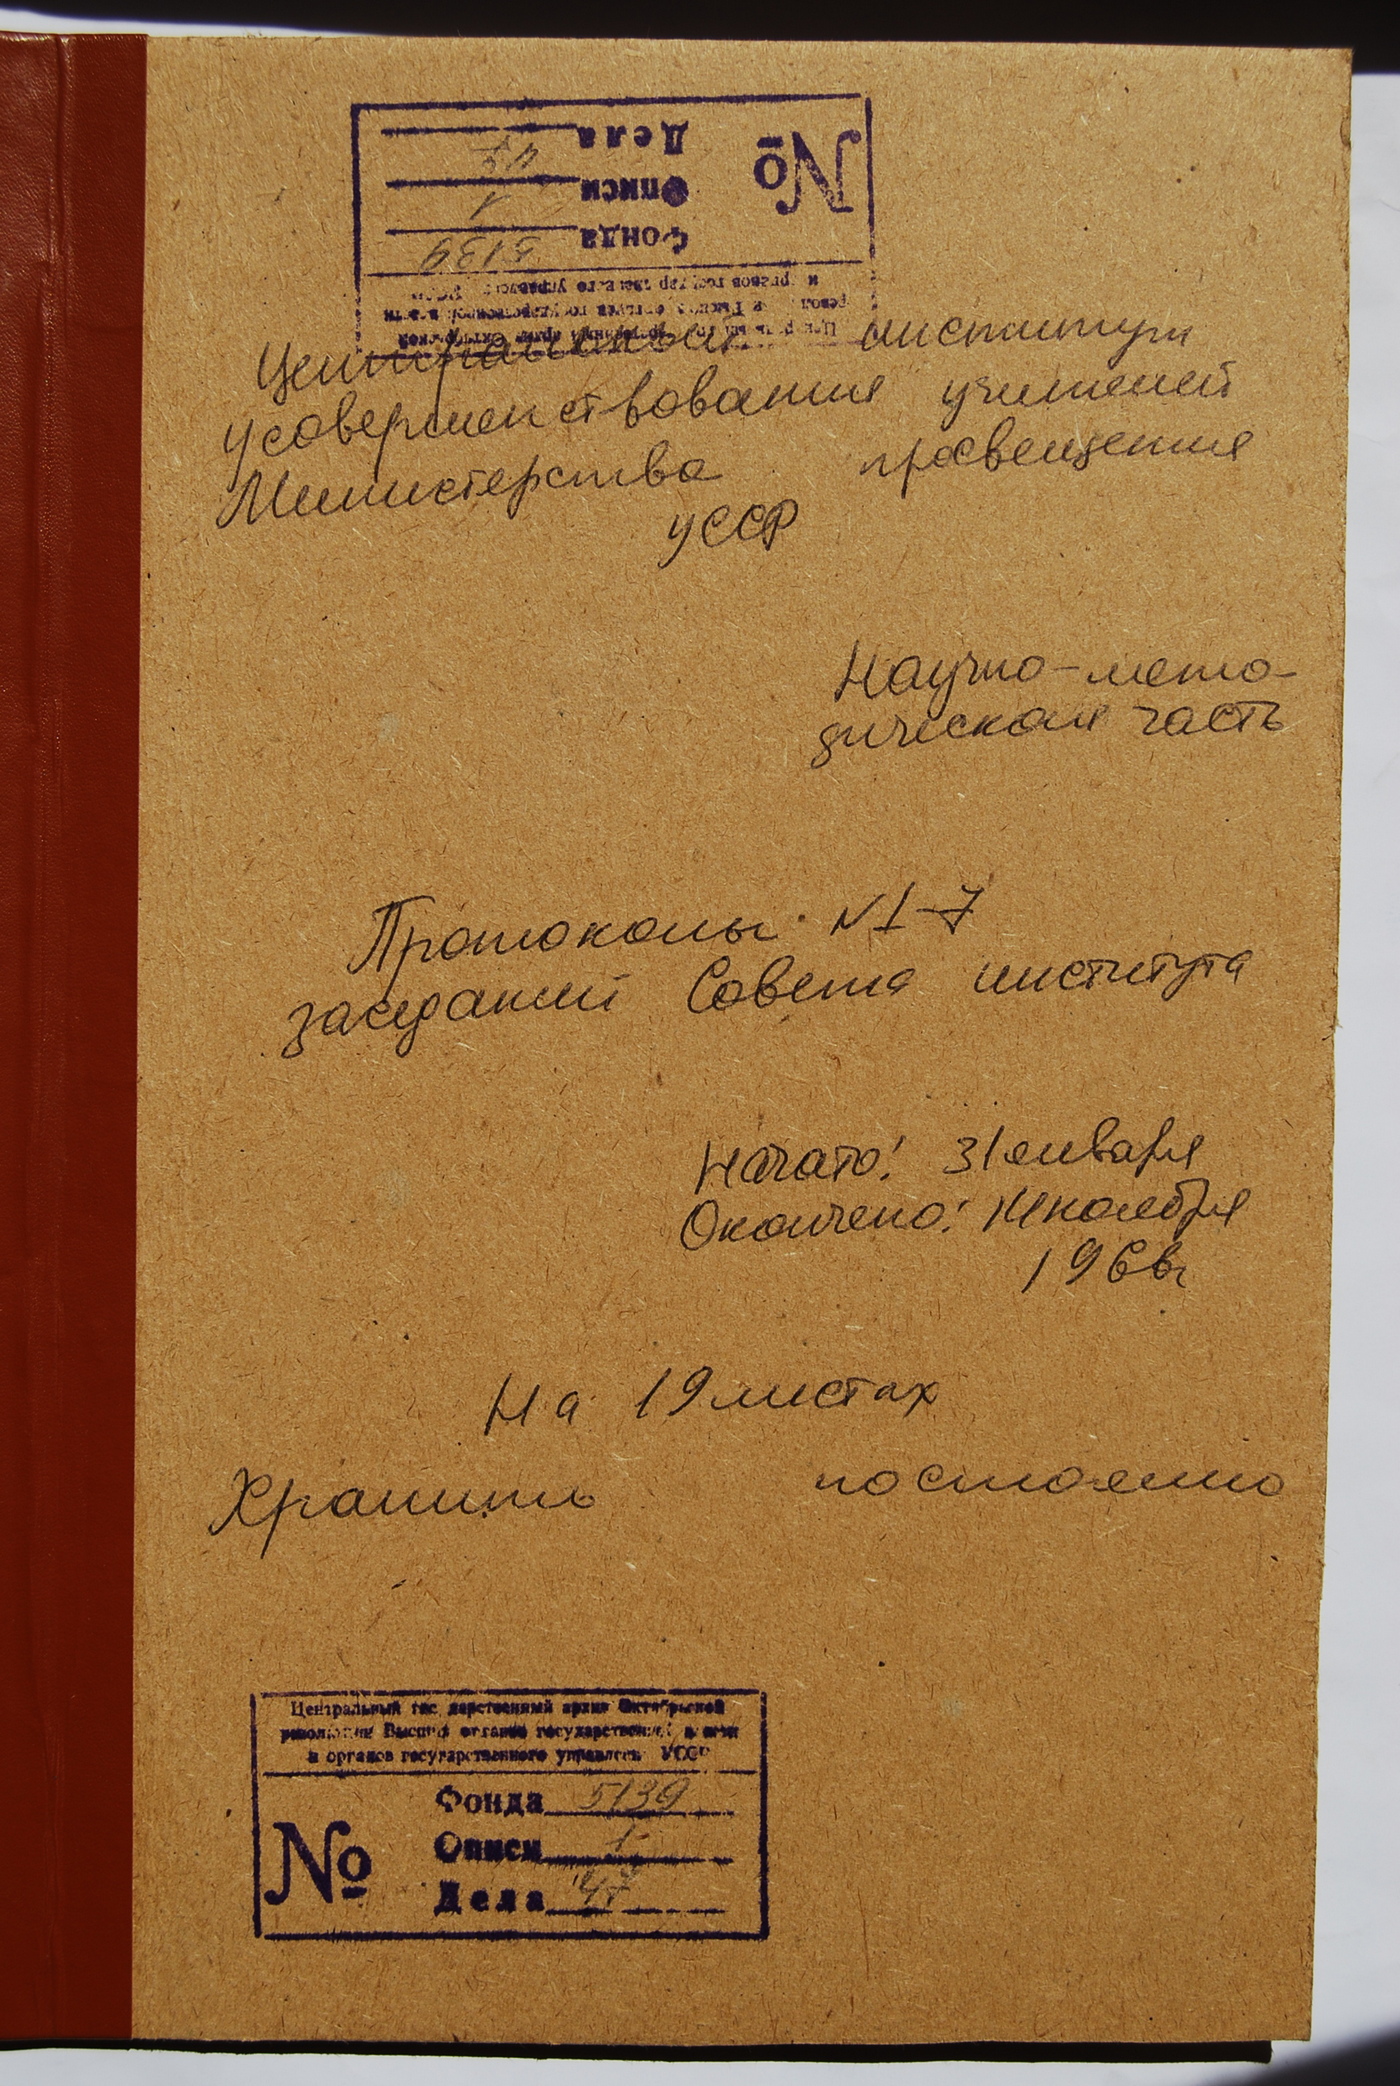 Центральный институт
усовершенствования учителей
Министерства просвещения
УССР
Научно-мето-
дическая часть
Протоколы N 1-7
заседаний Совета института
Начато: 31 января
Окончено: 14 ноября
1966г
На 19 листах
Хранить постоянно
Центральный государственный архив Октябрьской
революции Высших органов государственной власти
и органов государственного управления УССР
Фонда 5139
№ Описи 1
Дела 47
Центральный государственный архив Октябрьской
революции Высших органов государственной власти
и органов государственного управления УССР
Фонда 5139
№ Описи 1
Дела 47